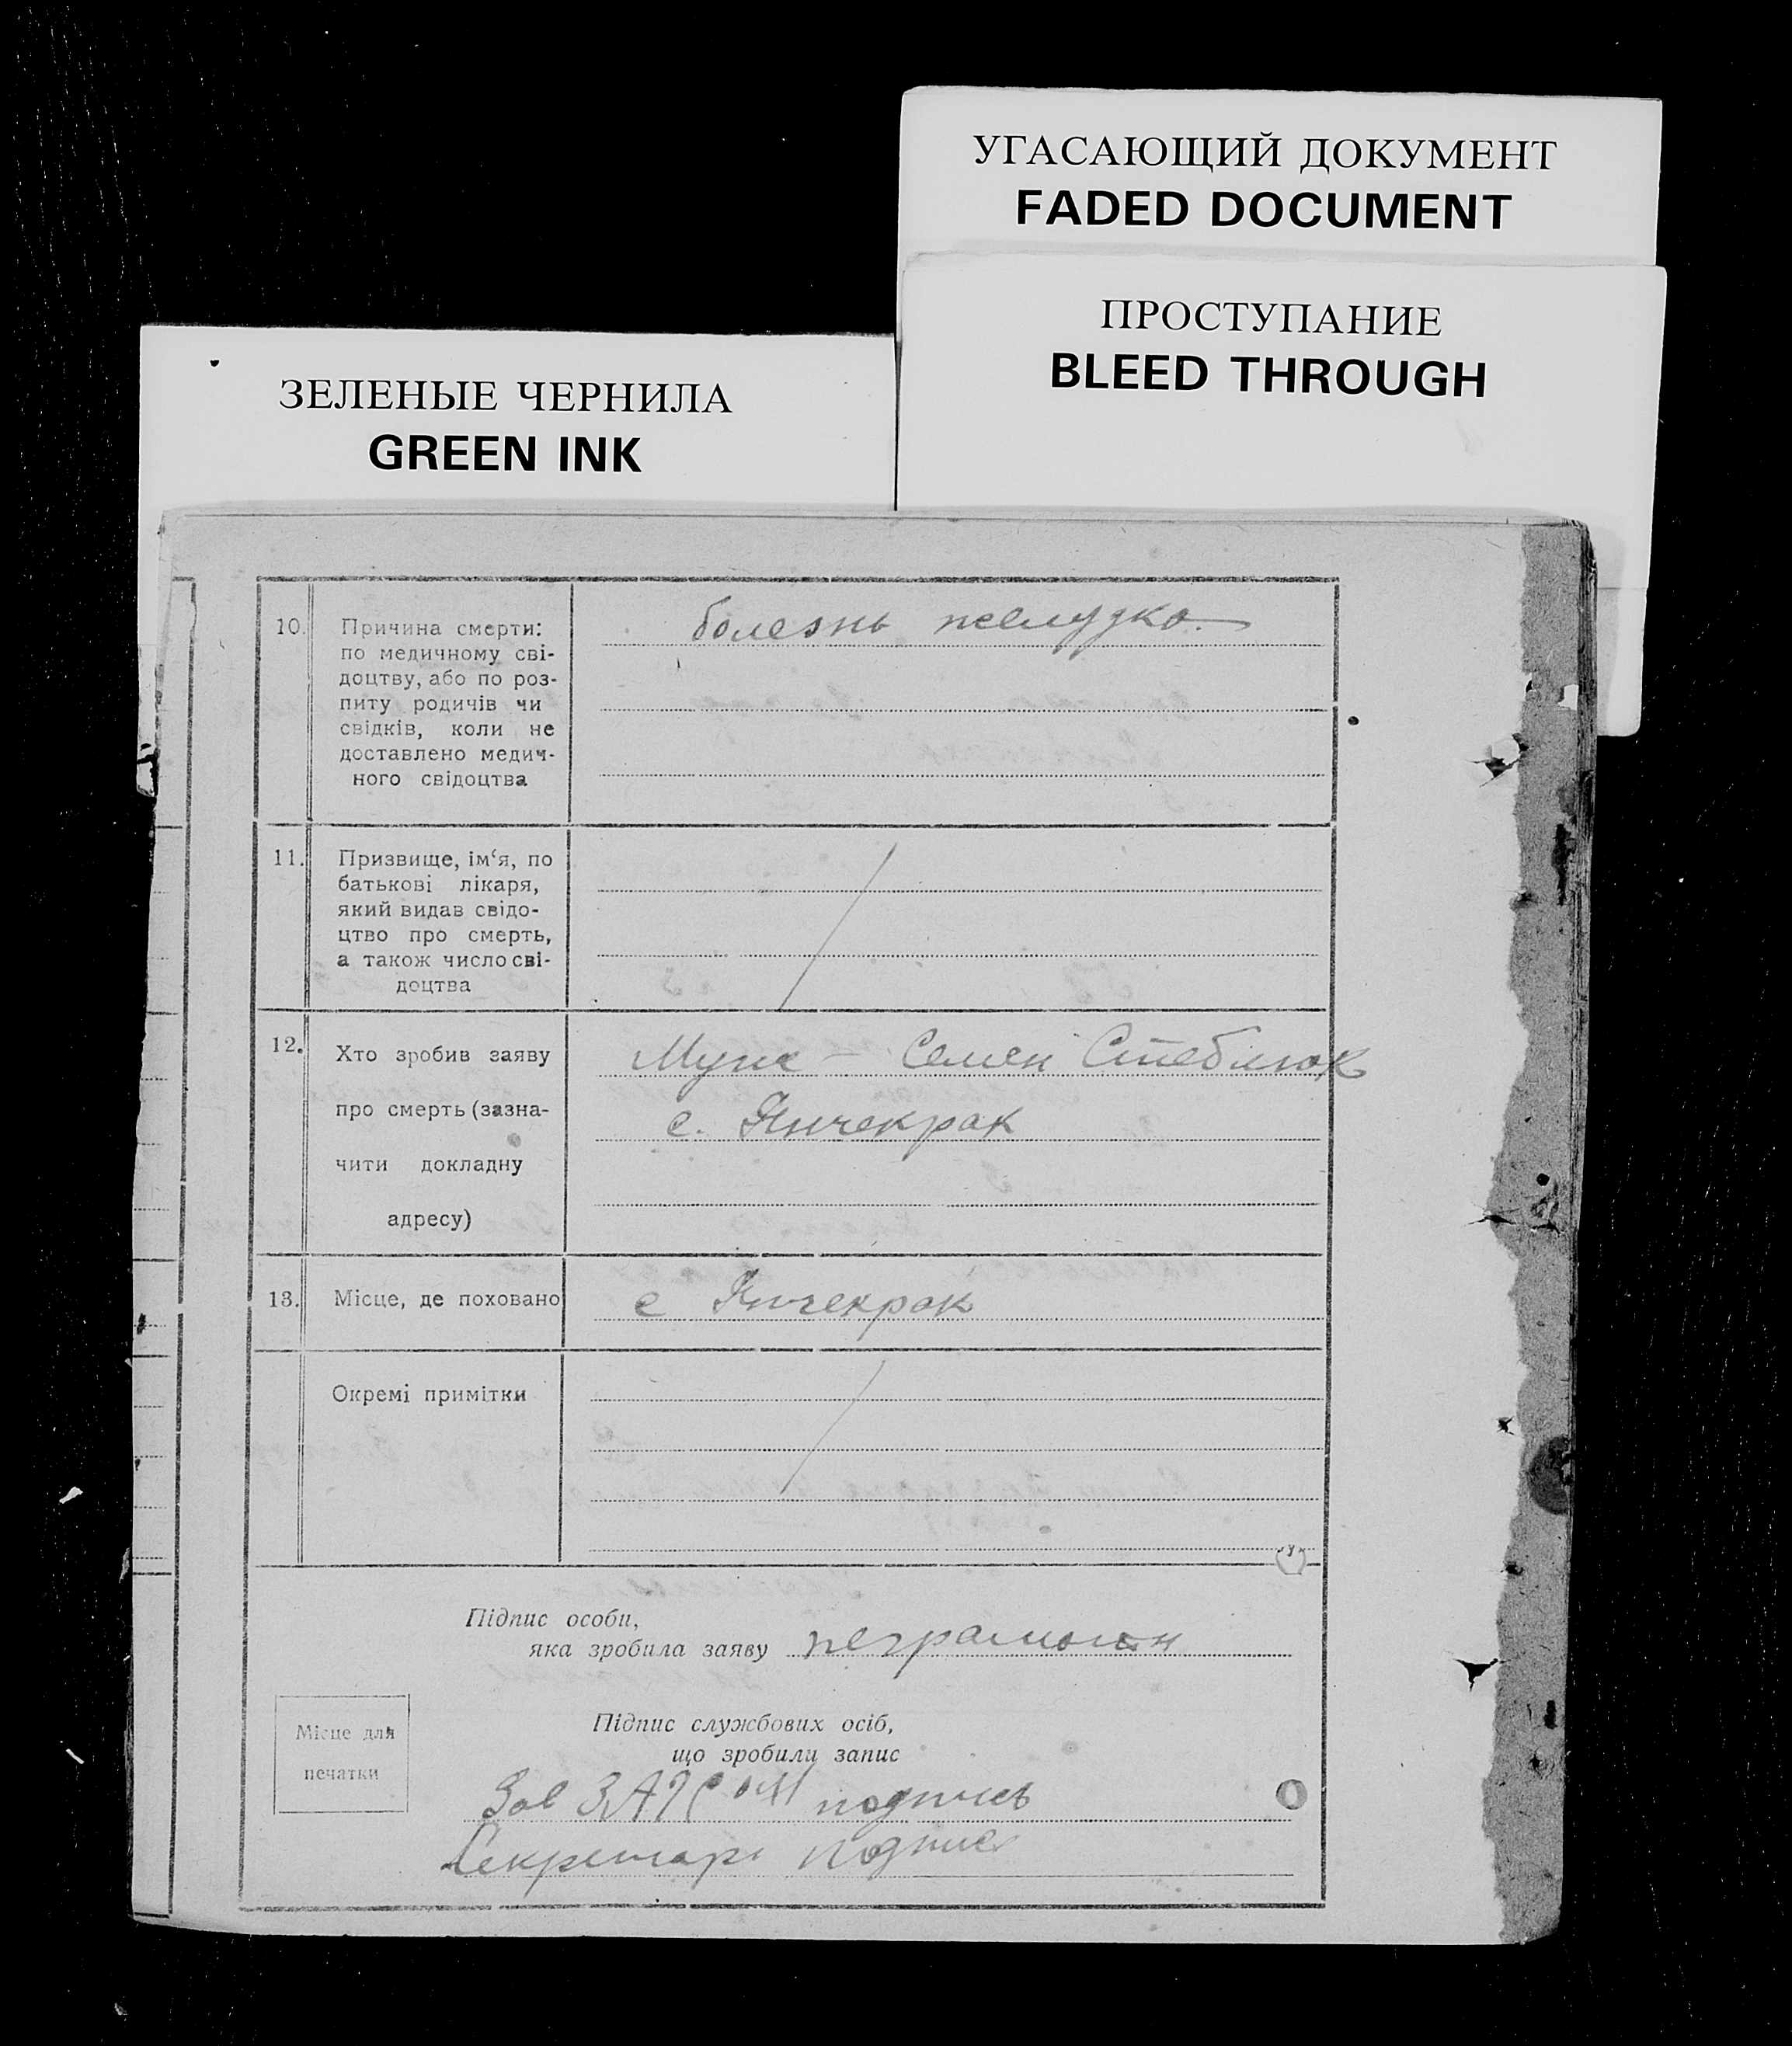 УГАСАЮЩИЙ ДОКУМЕНТ
FADED DOCUMENT
ПРОСТУПАНИЕ
BLEED THROUGH
ЗЕЛЕНЫЕ ЧЕРНИЛА
GREEN INK
10. Причина смерти: болезнь желудка
по медичному сві-
доцтву, або по роз-
питу родичів чи
свідків, коли не
доставлено медич-
ного свідоцтва
11. Призвище, ім‘я, по
батькові лікаря,
який видав свідо-
цтво про смерть,
а також число сві-
доцтва
12. Хто зробив заяву Муж — Семен Стеблюк
про смерть (зазна- с. Янчекрак
чити докладну
адресу)
13. Місце, де поховано с Янчекрак
Окремі примітки
Підпис особи,
яка зробила заяву неграмотен
Місце для
печатки
Підпис службових осіб,
що зробили запис
Зав ЗАГСом подпись
Секретарь подпись